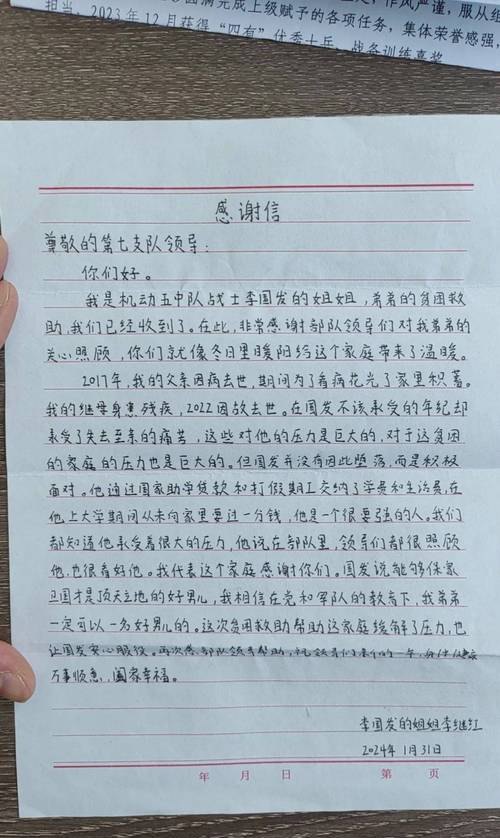 圆满完成上级赋予的各项任务，集体荣誉感强，
担当，2023年12月获得“四有”优秀士兵、战备训练嘉奖
感谢信
尊敬的第七支队领导：
你们好。
我是机动五中队战士李国发的姐姐，弟弟的贫困救
助，我们已经收到了。在此，非常感谢部队领导们对我弟弟的
关心照顾，你们就像冬日里暖阳给这个家庭带来了温暖。
2017年，我的父亲因病去世，期间为了看病花光了家里积蓄。
我的继母身患残疾，2022因故去世。在国发不该承受的年纪却
承受了失去至亲的痛苦，这些对他的压力是巨大的，对于这贫困
的家庭的压力也是巨大的。但国发并没有因此堕落，而是积极
面对。他通过国家助学贷款和打假期工交纳了学费和生活费，在
他上大学期间从未向家里要过一分钱，他是个很要强的人。我们
都知道他承受着很大的压力，他说在部队里，领导们都很照顾
他，也很看好他。我代表这个家庭感谢你们。国发说能够保家
卫国才是顶天立地的好男儿，我相信在党和军队的教育下，我弟弟
一定可以一名好男儿的。这次贫困救助帮助这家庭缓解了压力，也
让国发安心服役。再次感部队领导帮助，祝领导们来年的一年，身体健康
万事顺意，阖家幸福。
李国发的姐姐李继红
2024年1月31日
年 月 日 第 页